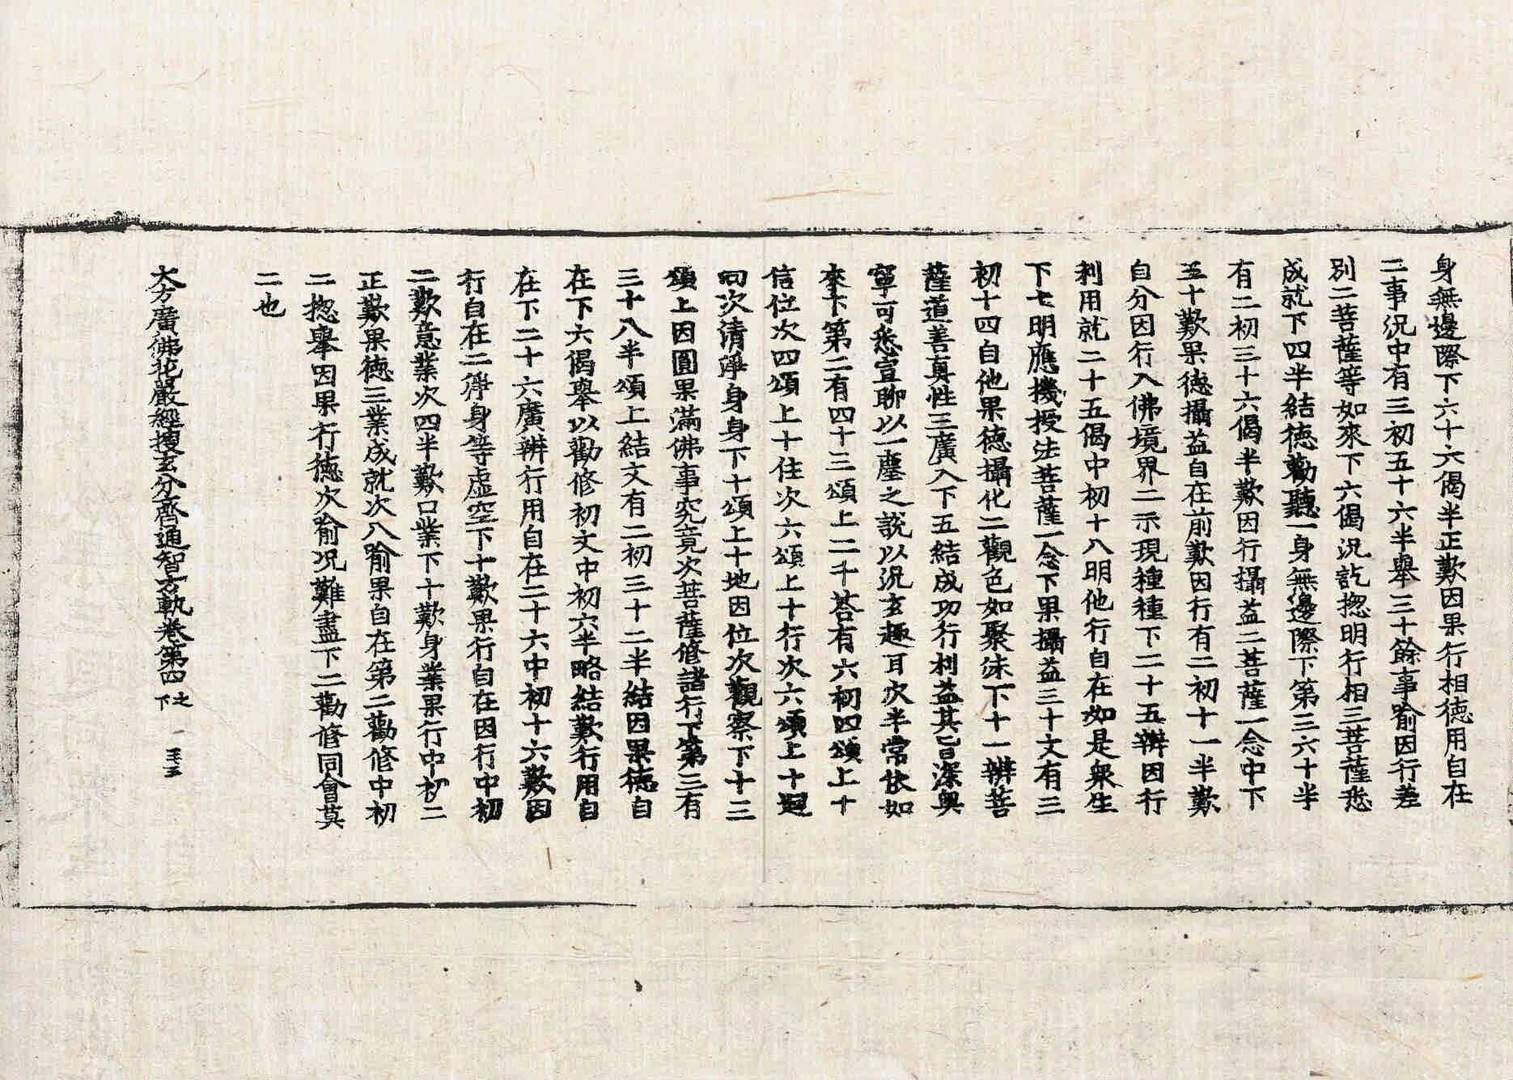 身無邊際下六十六偈半正歎因果行相德用自在
二事況中有三初五十六半舉三十餘事喻因行差
別二菩薩等如來下六偈況訖揔明行相三菩薩悉
成就下四半結德勸聽一身無邊際下第三六十半
有二初三十六偈半歎因行攝益二菩薩一念中下
五十歎果德攝益自在前歎因行有二初十一半歎
自分因行入佛境界二示現種種下二十五辨因行
利用就二十五偈中初十八明他行自在如是衆生
下七明應機授法菩薩一念下果攝益三十文有三
初十四自他果德攝化二觀色如聚沫下十一辨菩
薩道善真性三廣入下五結成功行利益其旨深奧
寧可悉宣聊以一塵之說以況玄趣耳次半常依如
來下第二有四十三頌上二千荅有六初四頌上十
信位次四頌上十住次六頌上十行次六頌上十迴
向次清淨身身下十頌上十地因位次觀察下十三
頌上因圓果滿佛事究竟次菩薩修諸行下第三有
三十八半頌上結文有二初三十二半結因果德自
在下六偈舉以勸修初文中初六半略結歎行用自
在下二十六廣辨行用自在二十六中初十六歎因
行自在二淨身等虛空下十歎果行自在因行中初
二歎意業次四半歎口業下十歎身業果行中初二
正歎果德三業成就次八喻果自在第二勸修中初
二揔舉因果行德次喻況難盡下二勸修同會莫
二也
大方廣佛花嚴經搜玄分齊通智方軌卷第四之下